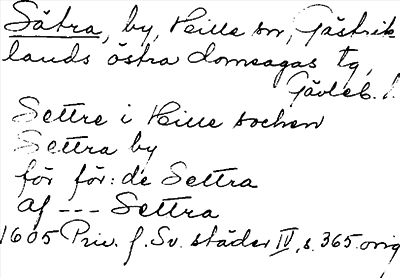 Sätra, by, Hille sn, Gästrik
lands östra domsagas tg,
Gävleb. l.
Settre i Hille socken
Settra by
för för: de Settra
af --- Settra
1605 Priv. f. Sv. städer IV, s. 365. orig